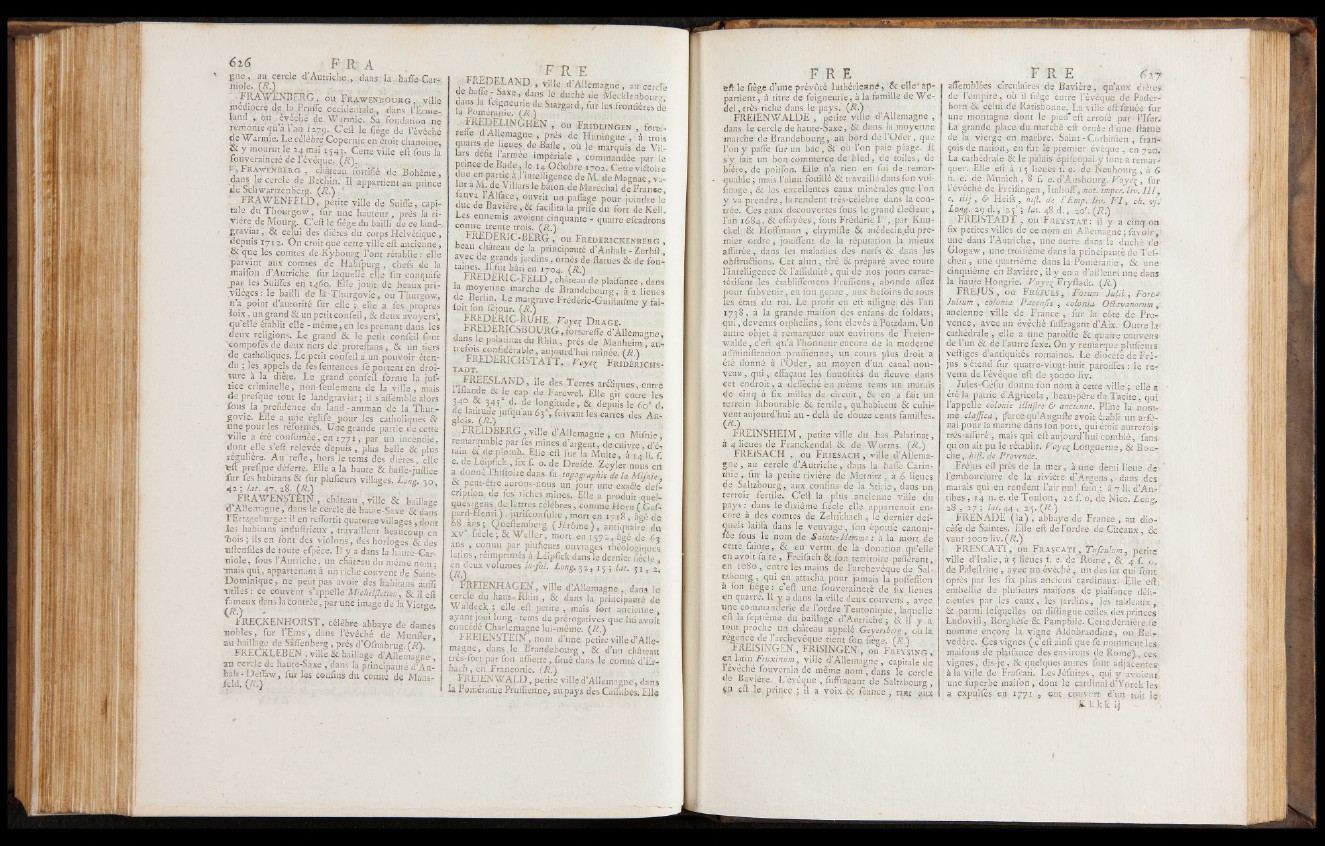 626 F R A
gne, au cercle d'Autriche, dans la basse-Car-
niole. (R.)
FRAWENBERG, ou FRAWENBOURG, ville
médiocre de la Prusse occidentale, dans l'Erme-
land, ou évêché de Warmie. Sa fondation ne
remonte qu'à l'an 1279. C'est le siége de l'évêché
de Warmie. Le célèbre Copernic en étoit chanoine,
& y mourut le 24 mai 1543. Cette ville est sous la
souveraineté de l'évêque. (R).
FRAWENBERG, château fortifié de Bohême,
dans le cercle de Bechin. Il appartient au prince
de Schwartzenberg. (R.)
FRAWENFELD, petite ville de Suisse, capi-
tale du Thourgow, sur une hauteur, près la ri-
vière de Mourg. C'est le siége du bailli de ce land-
graviat, & celui des diètes du corps Helvétique,
depuis 1712. On croit que cette ville est ancienne,
& que les comtes de Kybourg l'ont rétablie: elle
parvint aux comtes de Habspurg, chefs de la
maison d'Autriche, sur laquelle elle fut conquise
par les Suisses en 1460. Elle jouit de beaux pri-
vilèges: le bailli de la Thurgovie, ou Thurgow,
n'a point d'autorité sur elle; elle a ses propres
loix, un grand & un petit conseil, & deux avoyers,
qu'elle établit elle-même, en les prenant dans les
deux religions. Le grand & le petit conseil sont
composés de deux tiers de protestans, & un tiers
de catholiques. Le petit conseil a un pouvoir éten-
du; les appels de ses sentences se portent en droi-
ture à la diète. Le grand conseil forme la jus-
tice criminelle, non seulement de la ville, mais
de presque tout le landgraviat; il s'assemble alors
sous la présidence du land-amman de la Thur-
govie. Elle a une église pour les catholiques &
une pour les réformés. Une grande partie de cette
ville a été consumée, en 1771, par un incendie,
dont elle s'est relevée depuis, plus belle & plus
régulière. Au reste, hors le tems des diètes, elle
est presque déserte. Elle a la haute & basse-justice
sur ses habitans & sur plusieurs villages. Long. 30,
42; lat. 47, 28. (R.)
FRAWENSTEIN, château, ville & bailliage
d'Allemagne, dans le cercle de haute-Saxe & dans
l'Ertzgeburge: il en ressortit quatorze villages, dont
les habitans industrieux, travaillent beaucoup en
bois; ils en font des violons, des horloges & des
ustensiles de toute espèce. Il y a dans la haute-Car-
niole, sous l'Autriche, un château du même nom;
mais qui, appartenant à un riche couvent de Saint-
Dominique, ne peut pas avoir des habitans aussi
utiles: ce couvent s'appelle Michelstetten, & il est
fameux dans la contrée, par une image de la Vierge.
(R.)
FRECKENHORST, célèbre abbaye de dames
nobles, sur l'Ems, dans l'évêché de Munster,
au bailliage de Sassenberg, près d'Osnabrug. (R).
FRECKLEBEN, ville & bailliage d'Allemagne,
au cercle de haute-Saxe, dans la principauté d'An-
halt-Dessaw, sur les confins du comté de Mans-
feld. (R.)
F R E
FREDELAND, ville d'Allemagne, au cercle
de basse-Saxe, dans le duché de Mecklenbourg,
dans la seigneurie de Stargard, sur les frontières de
la Poméranie. (R.)
FREDELINGHEN, ou FRIDLINGEN, forte-
resse d'Allemagne, près de Huningue, à trois
quarts de lieues de Basle, où le marquis de Vil-
lars défit l'armée impériale, commandée par le
prince de Bade, le 14 Octobre 1702. Cette victoire
due en partie à l'intelligence de M. de Magnac, va-
lut à M. de Villars le bâton de Maréchal de France,
sauva l'Alsace, ouvrit un passage pour joindre le
duc de Bavière, & facilita la prise du fort de Kell.
Les ennemis avoient cinquante-quatre escadrons
contre trente trois. (R.)
FREDERIC-BERG, ou FREDERICKENBERG,
beau château de la principauté d'Anhalt-Zerbst,
avec de grands jardins, ornés de statues & de fon-
taines. Il fut bâti en 1704. (R.)
FREDERIC-FELD, château de plaisance, dans
la moyenne marche de Brandebourg, à 2 lieues
de Berlin. Le margrave Frédéric-Guillaume y fai-
soit son séjour. (R.)
FREDERIC-RUHE. Voyez DRAGE.
FREDERICSBOURG, forteresse d'Allemagne,
dans le palatinat du Rhin, près de Manheim, au-
trefois considérable, aujourd'hui ruinée. (R.)
FREDERICHSTATT. Voyez FRIDERICHS-
TADT.
FREESLAND, île des Terres arctiques, entre
l'Islande & le cap de Farewel. Elle gît entre les
340 & 345° d. de longitude, & depuis le 60e d.
de latitude jusqu'au 63e, suivant les cartes des An-
glois. (R.)
FREIDBERG, ville d'Allemagne, en Misnie,
remarquable par ses mines d'argent, de cuivre, d'é-
tain & de plomb. Elle est sur la Multe, à 14 li. s.
e. de Léipsick, six s. o. de Dresde. Zeyler nous en
a donné l'histoire dans sa topographie de la Misnie,
& peut-être aurons-nous un jour une exacte des-
cription de ses riches mines. Elle a produit quel-
ques gens de lettres célèbres, comme Horn (Gas-
pard-Henri), jurisconsulte, mort en 1718, âgé de
68 ans; Questemberg (Jérôme), antiquaire du
XVe siècle; & Weller, mort en 1572, âgé de 63
ans, connu par plusieurs ouvrages théologiques
latins, réimprimés à Léipsick dans le dernier siècle,
en deux volumes in-fol. Long. 32, 15; lat. 51, 2.
(R.)
FREIENHAGEN, ville d'Allemagne, dans le
cercle du haut-Rhin, & dans la principauté de
Waldeck; elle est petite, mais fort ancienne,
ayant joui long-tems de prérogatives que lui avoit
concédé Charlemagne lui-même. (R.)
FREIENSTEIN, nom d'une petite ville d'Alle-
magne, dans le Brandebourg, & d'un château
très-fort par son assiette, situé dans le comté d'Er-
bach, en Franconie. (R.)
FREIENWALD, petite ville d'Allemagne, dans
la Poméranie Prussienne, au pays des Cassubes. Elle
F R E
est le siége d'une prévôté luthérienne, & elle ap-
partient, à titre de seigneurie, à la famille de We-
del, très-riche dans le pays. (R.)
FREIENWALDE, petite ville d'Allemagne,
dans le cercle de haute-Saxe, & dans la moyenne
marche de Brandebourg, au bord de l'Oder, que
l'on y passe sur un bac, & où l'on paie péage. Il
s'y fait un bon commerce de bled, de toiles, de
bière, de poisson. Elle n'a rien en soi de remar-
quable; mais l'alun fouillé & travaillé dans son voi-
sinage, & les excellentes eaux minérales que l'on
y va prendre, la rendent très-célèbre dans la con-
trée. Ces eaux découvertes sous le grand électeur,
l'an 1684, & essayées, sous Fréderic Ier, par Kun-
ckel & Hoffmann, chymiste & médecin du pre-
mier ordre, jouissent de la réputation la mieux
assurée, dans les maladies des nerfs & dans les
obstructions. Cet alun, tiré & préparé avec toute
l'intelligence & l'assiduité, qui de nos jours carac-
térisent les établissemens Prussiens, abonde assez
pour subvenir, en son genre, aux besoins de tous
les états du roi. Le profit en est assigné dès l'an
1738, à la grande maison des enfans de soldats,
qui, devenus orphelins, sont élevés à Potzdam. Un
autre objet à remarquer aux environs de Freien-
walde, c'est qu'à l'honneur encore de la moderne
administration prussienne, un cours plus droit a
été donné à l'Oder, au moyen d'un canal nou-
veau, qui, effaçant les sinuosités du fleuve dans
cet endroit, a desséché en même tems un marais
de cinq à six milles de circuit, & en a fait un
terrein labourable & fertile, qu'habitent & culti-
vent aujourd'hui au-delà de douze cents familles.
(R.)
FREINSHEIM, petite ville du bas Palatinat,
à 4 lieues de Franckendal & de Worms. (R.)
FREISACH, ou FRIESACH, ville d'Allema-
gne, au cercle d'Autriche, dans la basse Carin-
thie, sur la petite rivière de Motnitz, à 6 lieues
de Saltzbourg, aux confins de la Stirie, dans un
terroir fertile. C'est la plus ancienne ville du
pays: dans le dixième siécle elle appartenoit en-
core à des comtes de Zeltschach, le dernier des-
quels laissa dans le veuvage, son épouse canoni-
sée sous le nom de Sainte-Hemme: à la mort de
cette sainte, & en vertu de la donation qu'elle
en avoit faite, Freisach & son territoire passèrent,
en 1080, entre les mains de l'archevêque de Sal-
tzbourg, qui en attacha pour jamais la possession
à son siége: c'est une souveraineté de six lieues
en quarré. Il y a dans la ville deux couvens, avec
une commanderie de l'ordre Teutonique, laquelle
est la septième du bailliage d'Autriche; & il y a
tout proche un château appelé Geyersberg, où la
régence de l'archevêque tient son siége. (R.)
FREISINGEN, FRISINGEN, ou FREYSING,
en latin Fruxinum, ville d'Allemagne, capitale de
l'évêché souverain de même nom, dans le cercle
de Bavière. L'évêque, suffragant de Saltzbourg,
en est le prince; il a voix & séance, tant aux
F R E 627
assemblées circulaires de Bavière, qu'aux diètes
de l'empire, où il siége entre l'évêque de Pader-
born & celui de Ratisbonne. La ville est située sur
une montagne dont le pied est arrosé par l'Iser.
La grande place du marché est ornée d'une statue
de la vierge en marbre. Saint-Corbinien, fran-
çois de nation, en fut le premier évêque, en 720.
La cathédrale & le palais épiscopal y sont à remar-
quer. Elle est à 15 lieues s. e. de Neubourg, à 6
n. e. de Munich, 8 s. e. d'Ausbourg. Voyez, sur
l'évêché de Freisingen, Imhoff, not. imper. liv. III,
c. iij, & Heiss, hist. de l'Emp. liv. VI, ch. vj.
Long. 29 d., 25; lat. 48 d., 20'. (R.)
FREISTADT, ou FREYSTAT: il y a cinq ou
six petites villes de ce nom en Allemagne; savoir,
une dans l'Autriche, une autre dans le duché de
Glogaw, une troisième dans la principauté de Tes-
chen, une quatrième dans la Poméranie, & une
cinquième en Bavière, il y en a d'ailleurs une dans
la haute Hongrie. Voyez Fryslads. (R.)
FREJUS, ou FRÉJULS, Forum Julii, Foro-
Julium, colonia Pacensis, colonia Octavanorum,
ancienne ville de France, sur la côte de Pro-
vence, avec un évêché suffragant d'Aix. Outre la
cathédrale, elle a une paroisse & quatre couvens
de l'un & de l'autre sexe. On y remarque plusieurs
vestiges d'antiquités romaines. Le diocèse de Fré-
jus s'étend sur quatre-vingt-huit paroisses: le re-
venu de l'évêque est de 30000 liv.
Jules-César donna son nom à cette ville; elle a
été la patrie d'Agricola, beau-père de Tacite, qui
l'appelle colonie illustre & ancienne. Pline la nom-
me classica, parce qu'Auguste avoit établi un arsé-
nal pour la marine dans son port, qui étoit autrefois
très-assuré, mais qui est aujourd'hui comblé, sans
qu'on ait pu le rétablir. Voyez Longuerue, & Bou-
che, hist. de Provence.
Fréjus est près de la mer, à une demi lieue de
l'embouchure de la rivière d'Argens, dans des
marais qui en rendent l'air mal sain; à 7 li. d'An-
tibes, 14 n. e. de Toulon, 12 s. o. de Nice. Long.
28, 27; lat. 44, 25. (R.)
FRENADE (la), abbaye de France, au dio-
cèse de Saintes. Elle est de l'ordre de Cîteaux, &
vaut 2000 liv. (R.)
FRESCATI, ou FRASCATI, Tusculum, petite
ville d'Italie, à 5 lieues s. e. de Rome, & 4 s. o.
de Palestrine, avec un évêché, un des six qui sont
optés par les six plus anciens cardinaux. Elle est
embellie de plusieurs maisons de plaisance déli-
cieuses par les eaux, les jardins, les tableaux,
& parmi lesquelles on distingue celles des princes
Ludovisi, Borghèse & Pamphile. Cette dernière se
nomme encore la vigne Aldobrandine, ou Bel-
vedère. Ces vignes (c'est ainsi que se nomment les
maisons de plaisance des environs de Rome), ces
vignes, dis-je, & quelques autres sont adjacentes
à la ville de Frascati. Les Jésuites, qui y avoient
une superbe maison, dont le cardinal d'Yorck les
a expulsés en 1771, ont couvert d'un toit le
K k k k ij